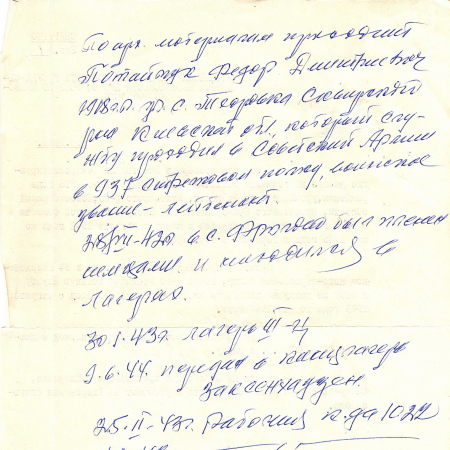 По арх. материалам проходит
Потайчук Федор Дмитриевич
1918 г.р. ур. с. Теофовка Сквирского
р-на Киевской обл., который слу-
жбу проходил в Советской Армии
в 937 стрелковом полку воинское
звание - лейтенант.
28/VII-42г. в с. был пленен
немцами. и находился в
лагерях.
30.1.43г. лагерь III-Ц
9.6.44. передан в концлагерь
Заксенхаузен.
25.II-43г. Рабочий к-да 1022